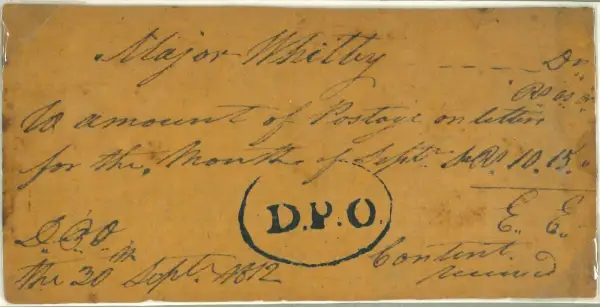 Major Whitby — — Dr,,
Rs as
To amount of Postage on letters
for the Month of Septr. SRs 10. 15,,
E,, E,,
D.P.O.
D.P.O
the 30th Septr. 1812
Content
received